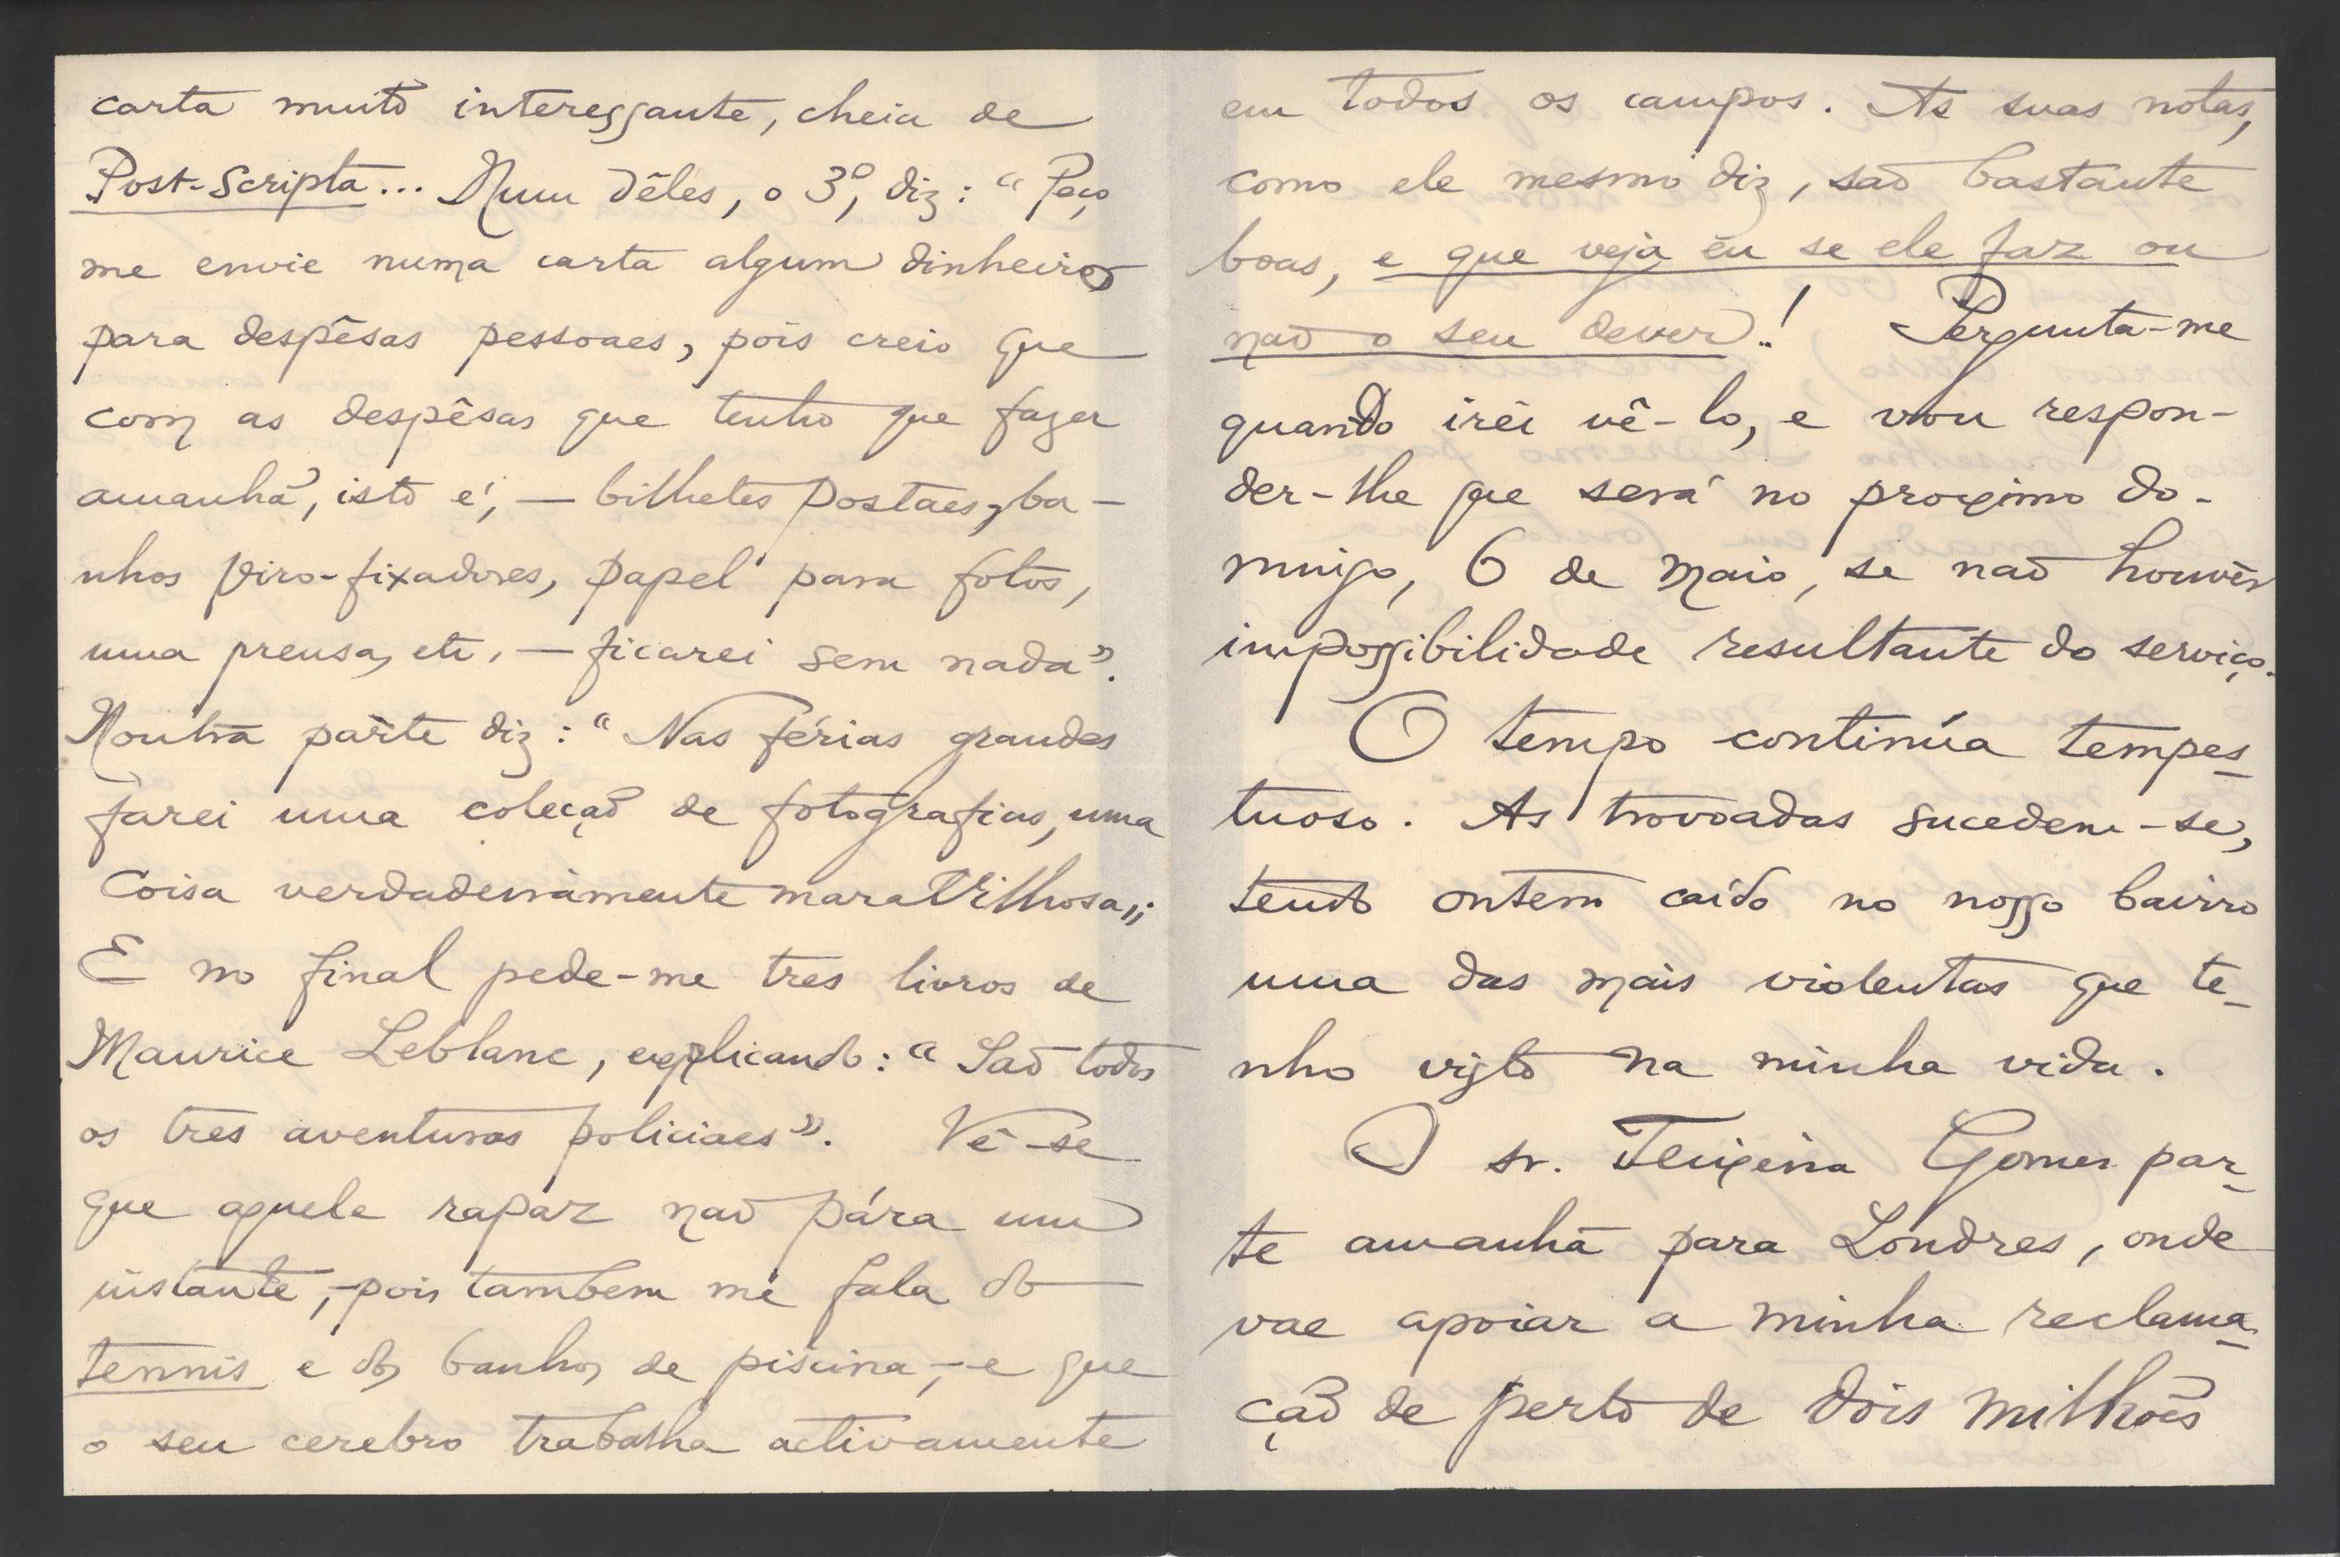 carta muito interessante, cheia de
Post-Scripta... Num dêles, o 3º, diz: "Peço
me envie numa carta algum dinheiro
para despêsas pessoaes, pois creio que
com as despêsas que tenho que fazer
amanhã, isto é, — bilhetes postaes, ba-
nhos viro-fixadores, papel para fotos,
uma prensa, etc, — ficarei sem nada".
Noutra parte diz: "Nas férias grandes
farei uma coleção de fotografias, uma
coisa verdadeiramente maravilhosa";
E no final pede-me tres livros de
Maurice Leblanc, explicando: "São todos
os tres aventuras policiaes". Vê-se
que aquele rapaz não pára um
instante, - pois tambem me fala do
tennis e dos banhos de piscina, - e que
o seu cerebro trabalha activamente
em todos os campos. As suas notas,
como ele mesmo diz, são bastante
boas, e que veja eu se ele faz ou
não o seu dever..! Pergunta-me
quando irei vê-lo, e vou respon-
der-lhe que será no proximo do-
mingo, 6 de Maio, se não houvér
impossibilidade resultante do serviço.
O tempo continúa tempes-
tuoso. As trovoadas sucedem-se,
tendo ontem caído no nosso bairro
uma das mais violentas que te-
nho visto na minha vida.
O sr. Teixeira Gomes par-
te amanhã para Londres, onde
vae apoiar a minha reclama-
ção de perto de dois milhões